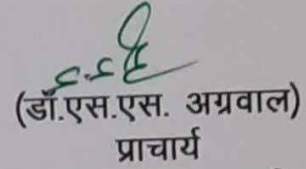 (डॉ.एस.एस. अग्रवाल)
प्राचार्य